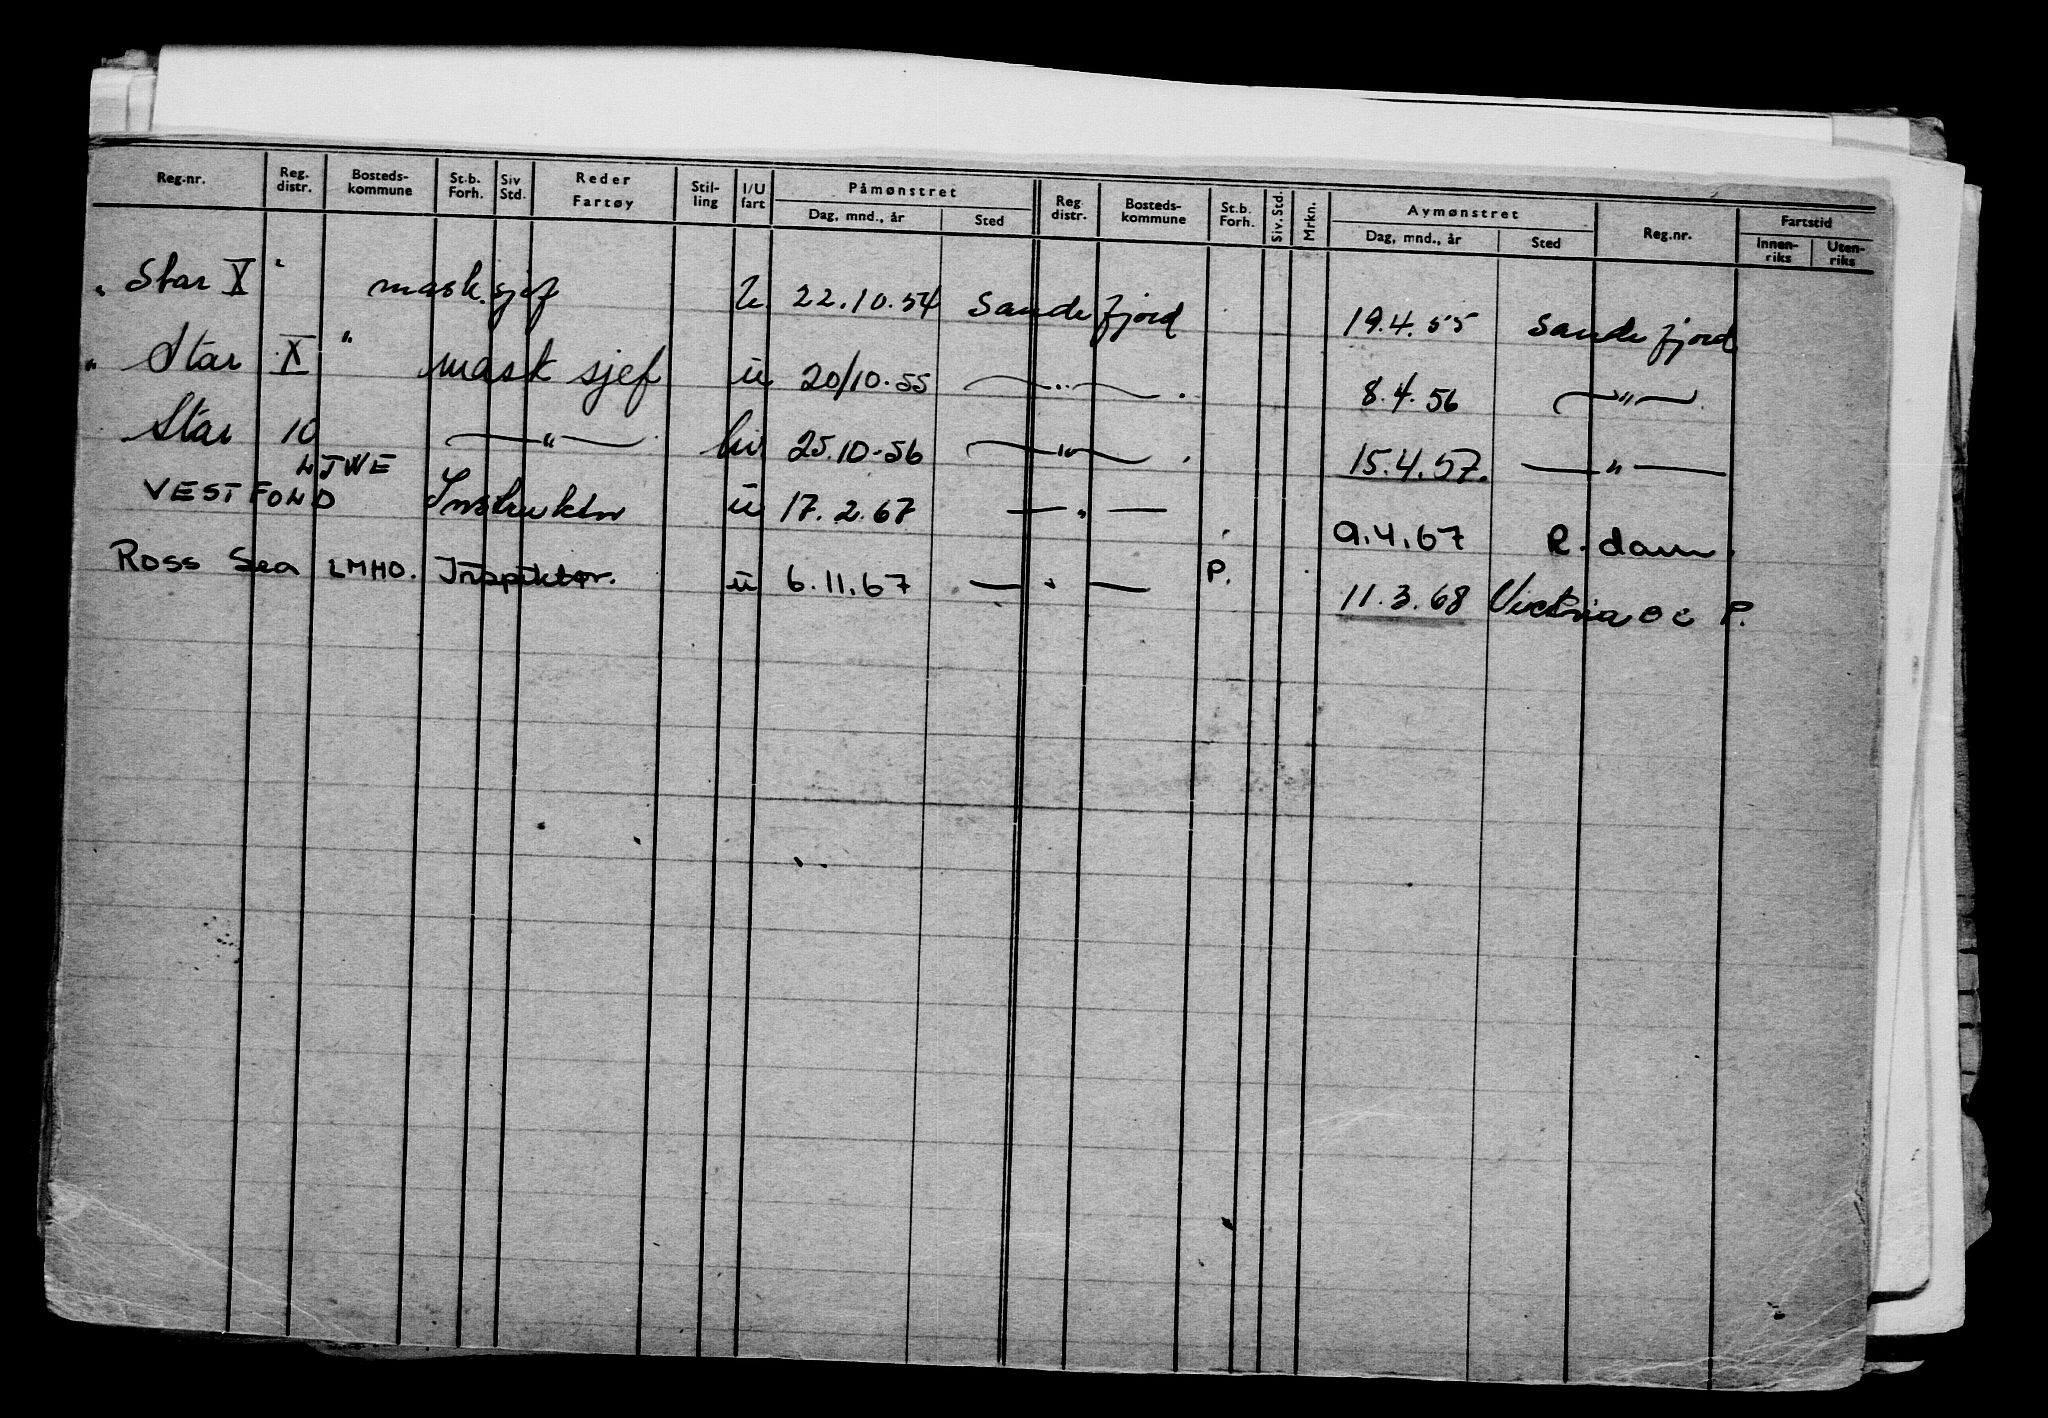 Reg.nr. Reg. distr. Bosteds-kommune St.b. Forh. Siv Std. Reder Fartøy Stil-ling I/U fart Påmønstret Dag, mnd., år Sted Reg distr. Bosteds-kommune St.b. Forh. Siv. Std. Mrkn. Avmønstret Dag, mnd., år Sted Reg.nr. Fartstid Innen-riks Uten-riks
" Star X " mask.sjef u 22.10.54 Sandefjord 19.4.55 Sandefjord
" Star X " mask sjef u 20/10.55 — " — . 8.4.56 — " —
Star 10 — " — hv. 25.10-56 — " — . 15.4.57. — " —
LJWE
VESTFOND Instruktør u 17.2.67 — " — 9.4.67 R.dam.
Ross Sea LMHO. Inspektør. u 6.11.67 — " — P. 11.3.68 Victoria P.